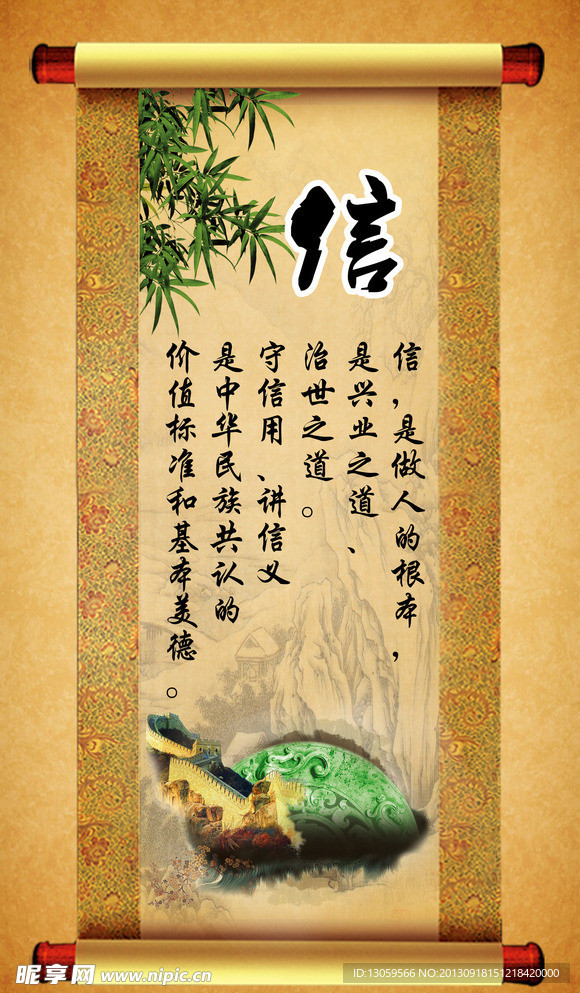 信
信,是做人的根本,
是兴业之道、
治世之道。
守信用、讲信义
是中华民族共认的
价值标准和基本美德。
昵享网 www.nipic.cn
ID:13059566 NO:20130918151218420000